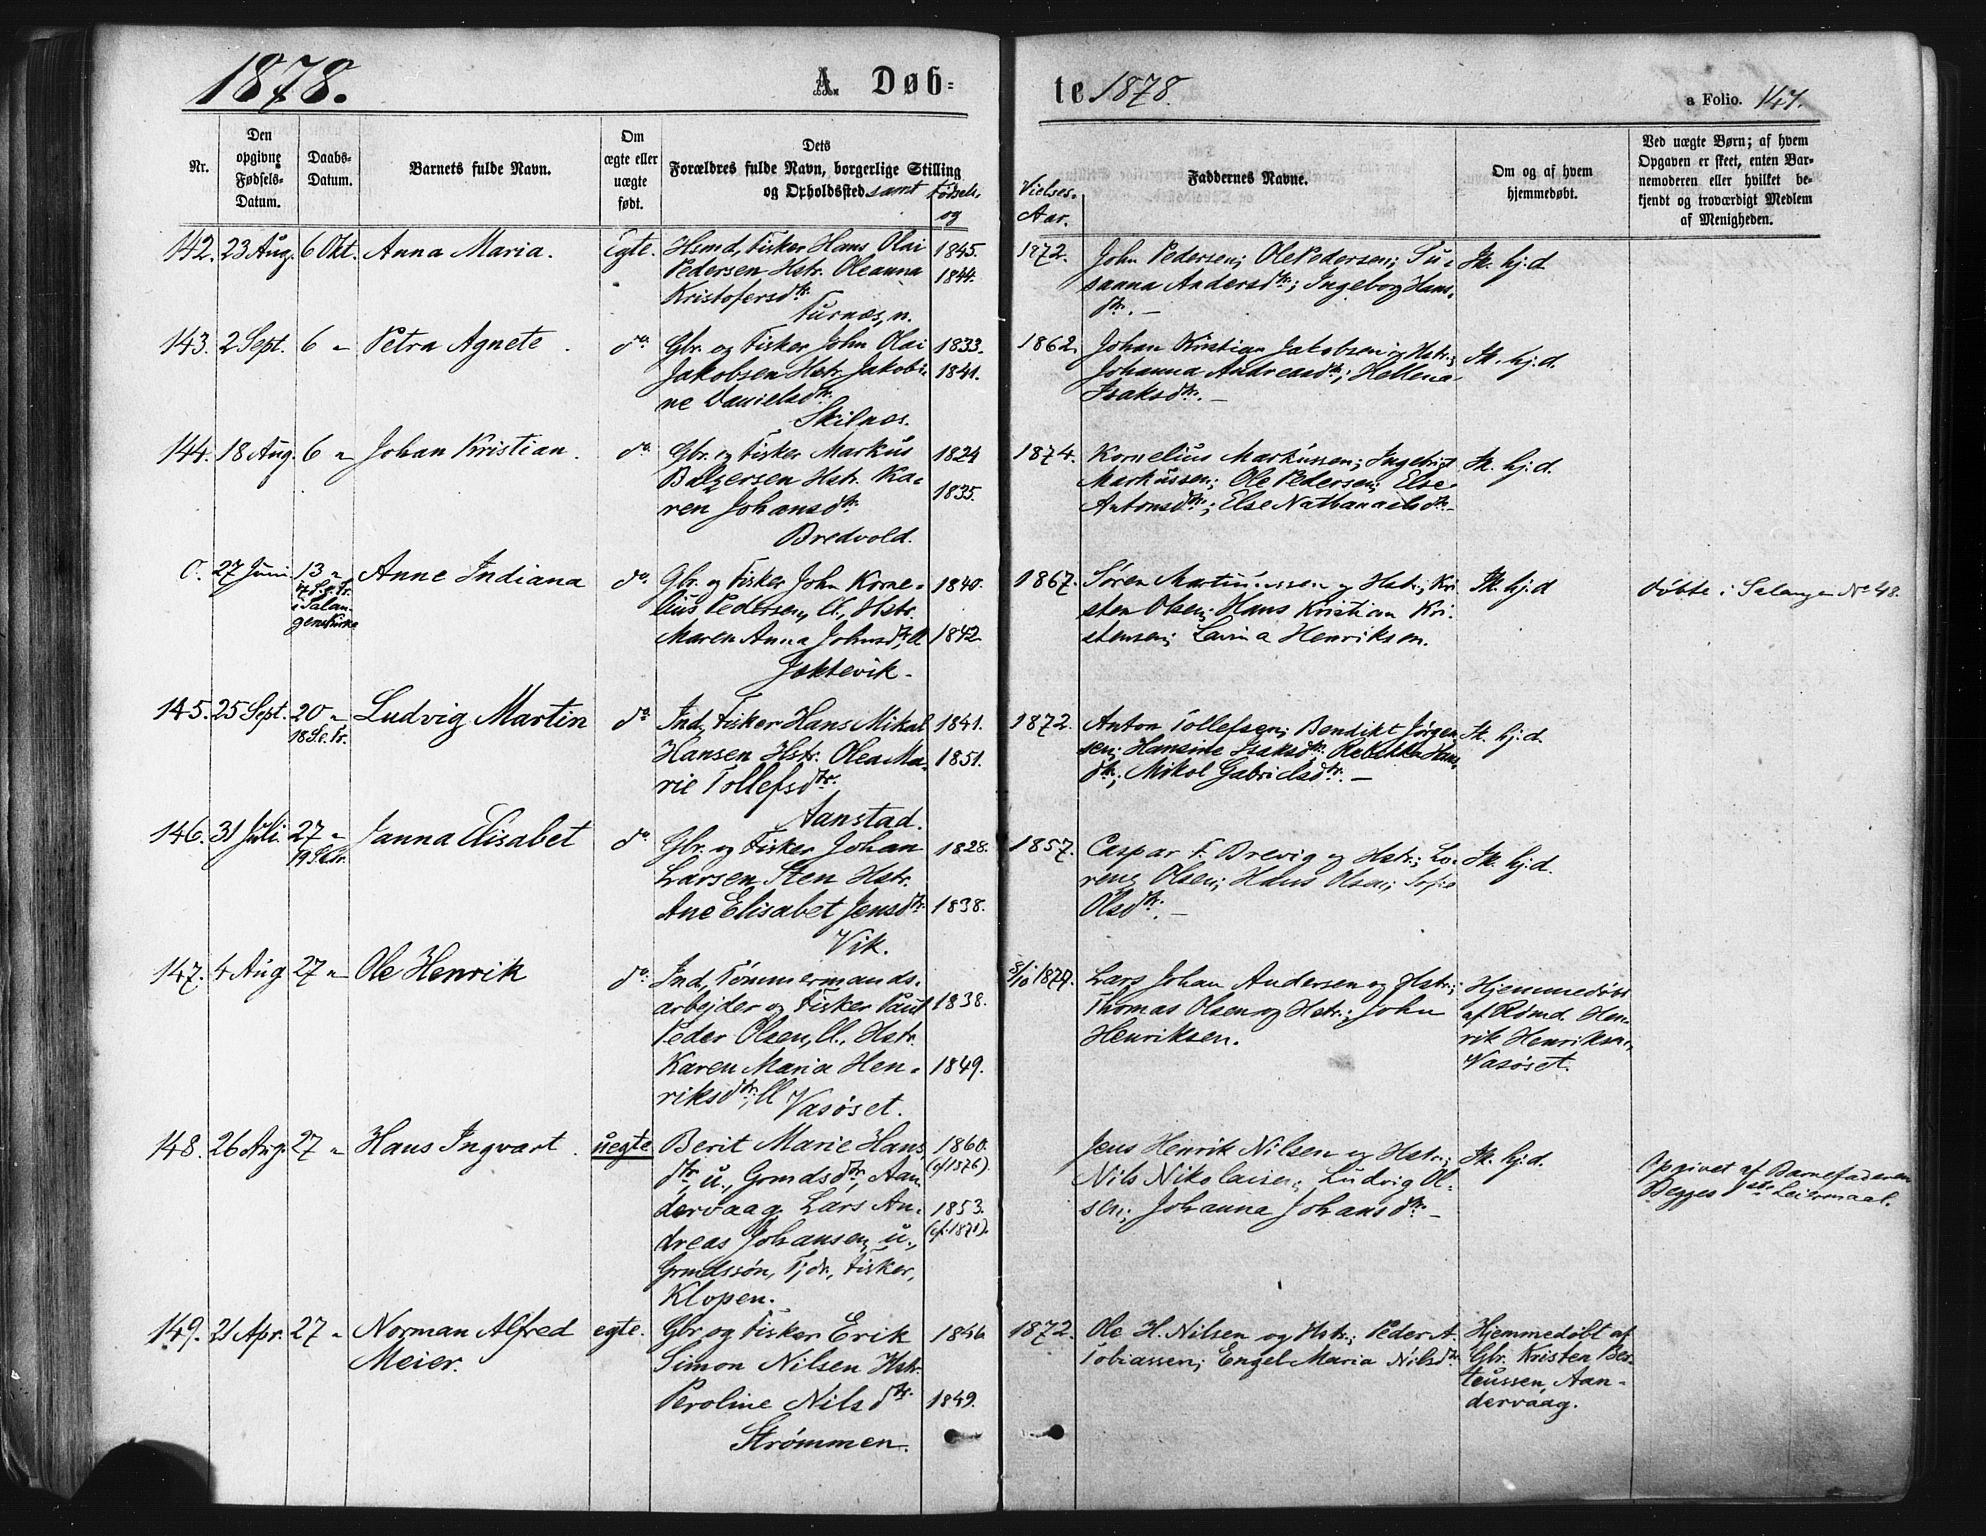 1878.
A. Døb=
te 1878.
a Folio. 147.
Nr.
Den opgivne Fødsels-Datum.
Daabs-Datum.
Barnets fulde Navn.
Om ægte eller uægte født.
Dets Forældres fulde Navn, borgerlige Stilling og Opholdssted samt Fødsels- og
Vielses-Aar.
Faddernes Navne.
Om og af hvem hjemmedøbt.
Ved uægte Børn; af hvem Opgaven er skeet, enten Barnemoderen eller hvilket bekjendt og troværdigt Medlem af Menigheden.
142. 23 Aug. 6 Okt. Anna Maria. Egte.
Hsmd, Fisker Hans Olai 1845.
Pedersen Hstr. Oleanna 1844.
Kristofersdtr.
Furnæs, n.
1872.
John Pedersen; Ole Pedersen; Su-
sanna Andersdtr.; Ingeborg Hans-
dtr. —
St. hj.d.
143. 2 Sept. 6 " Petra Agnete do.
Gbr. og Fisker John Olai 1833.
Jakobsen Hstr. Jakobi- 1841.
ne Danielsdtr.
Skilnes.
1862.
Johan Kristian Jakobsen og Hstr.;
Johanna Andreasdtr.; Hellena
Isaksdtr. —
St. hj.d.
144. 18 Aug. 6 " Johan Kristian. do.
Gbr. og Fisker Markus 1824
Balzersen Hstr. Ka- 1835.
ren Johansdtr.
Bredvold.
1874.
Kornelius Markussen; Ingebrigt
Markussen; Ole Pedersen; Else
Antonsdtr.; Else Nathanaelsdtr.
St. hj.d.
0. 27 Juni 13 " Anne Indiana do.
i Salan-
genskirke
Gbr. og Fisker John Korne- 1840.
lius Pedersen, Hstr.
Maren Anna Johnsdtr. 1842.
Joktevik.
1867.
Søren og Hstr.; Kri-
sten Olsen; Hans Kristian Kri-
stensen; Henriksen.
St. hj.d
døbte i Salangen No 48.
145. 25 Sept. 20 " Ludvig Martin do.
18 S.e.Tr.
Ind., Fisker Hans Mikal 1841.
Hansen Hstr. Olea Ma- 1851.
rie Tollefsdtr.
Aanstad.
1872.
Anton Tollefsen; Bendikt Jørgen-
sen; Hansine Isaksdtr.; Rebekka Hans-
dtr.; Mikol Gabrielsdtr. —
St. hj.d.
146. 31 Juli. 27 " Janna Elisabet do.
19 S.e.Tr.
Gbr. og Fisker Johan 1828.
Larsen Sten Hstr.
Ane Elisabet Jensdtr. 1838.
Vik.
1857.
Caspar F. Brevig og Hstr.; Lo-
renz Olsen; Hans Olsen; Sofie
Olsdtr. —
St. hj.d.
147. 4 Aug 27 " Ole Henrik do.
Ind., Tømmermands-
arbejder og Fisker Paul 1838.
Peder Olsen, Hstr.
Karen Maria Hen- 1849.
riksdtr.,
Vasøset.
Lars Johan Andersen og Hstr.;
Thomas Olsen og Hstr.; John
Henriksen.
Hjemmedøbt
af Rømd. Hen-
rik Henriksen,
Vasøset.
148. 26 Aug. 27 " Hans Ingvart. uegte
Berit Marie Hans- 1860.
dtr., u., Grmdsdtr., Aan- (cf 1876).
dervaag. Lars An- 1853.
dreas Johansen, u., (cf. 1871).
Grmdssøn, Tjdr., Fisker,
Klopen.
Jens Henrik Nilsen og Hstr.;
Nils Nikolaisen; Ludvig Ol-
sen; Johanna Johansdtr. —
St. hj.d.
Opgivet af Barnefaderen
Begges 1ste Leiermaal.
149. 21 Apr. 27 " Norman Alfred egte.
Meier.
Gbr og Fisker Erik 1846
Simon Nilsen Hstr.
Peroline Nilsdtr. 1849.
Strømmen.
1872.
Ole H. Nilsen og Hstr.; Peder A.
Tobiassen; Engel Maria Nilsdtr.
Hjemmedøbt af
Gbr. Kristen Ber-
teussen, Aan-
dervaag.